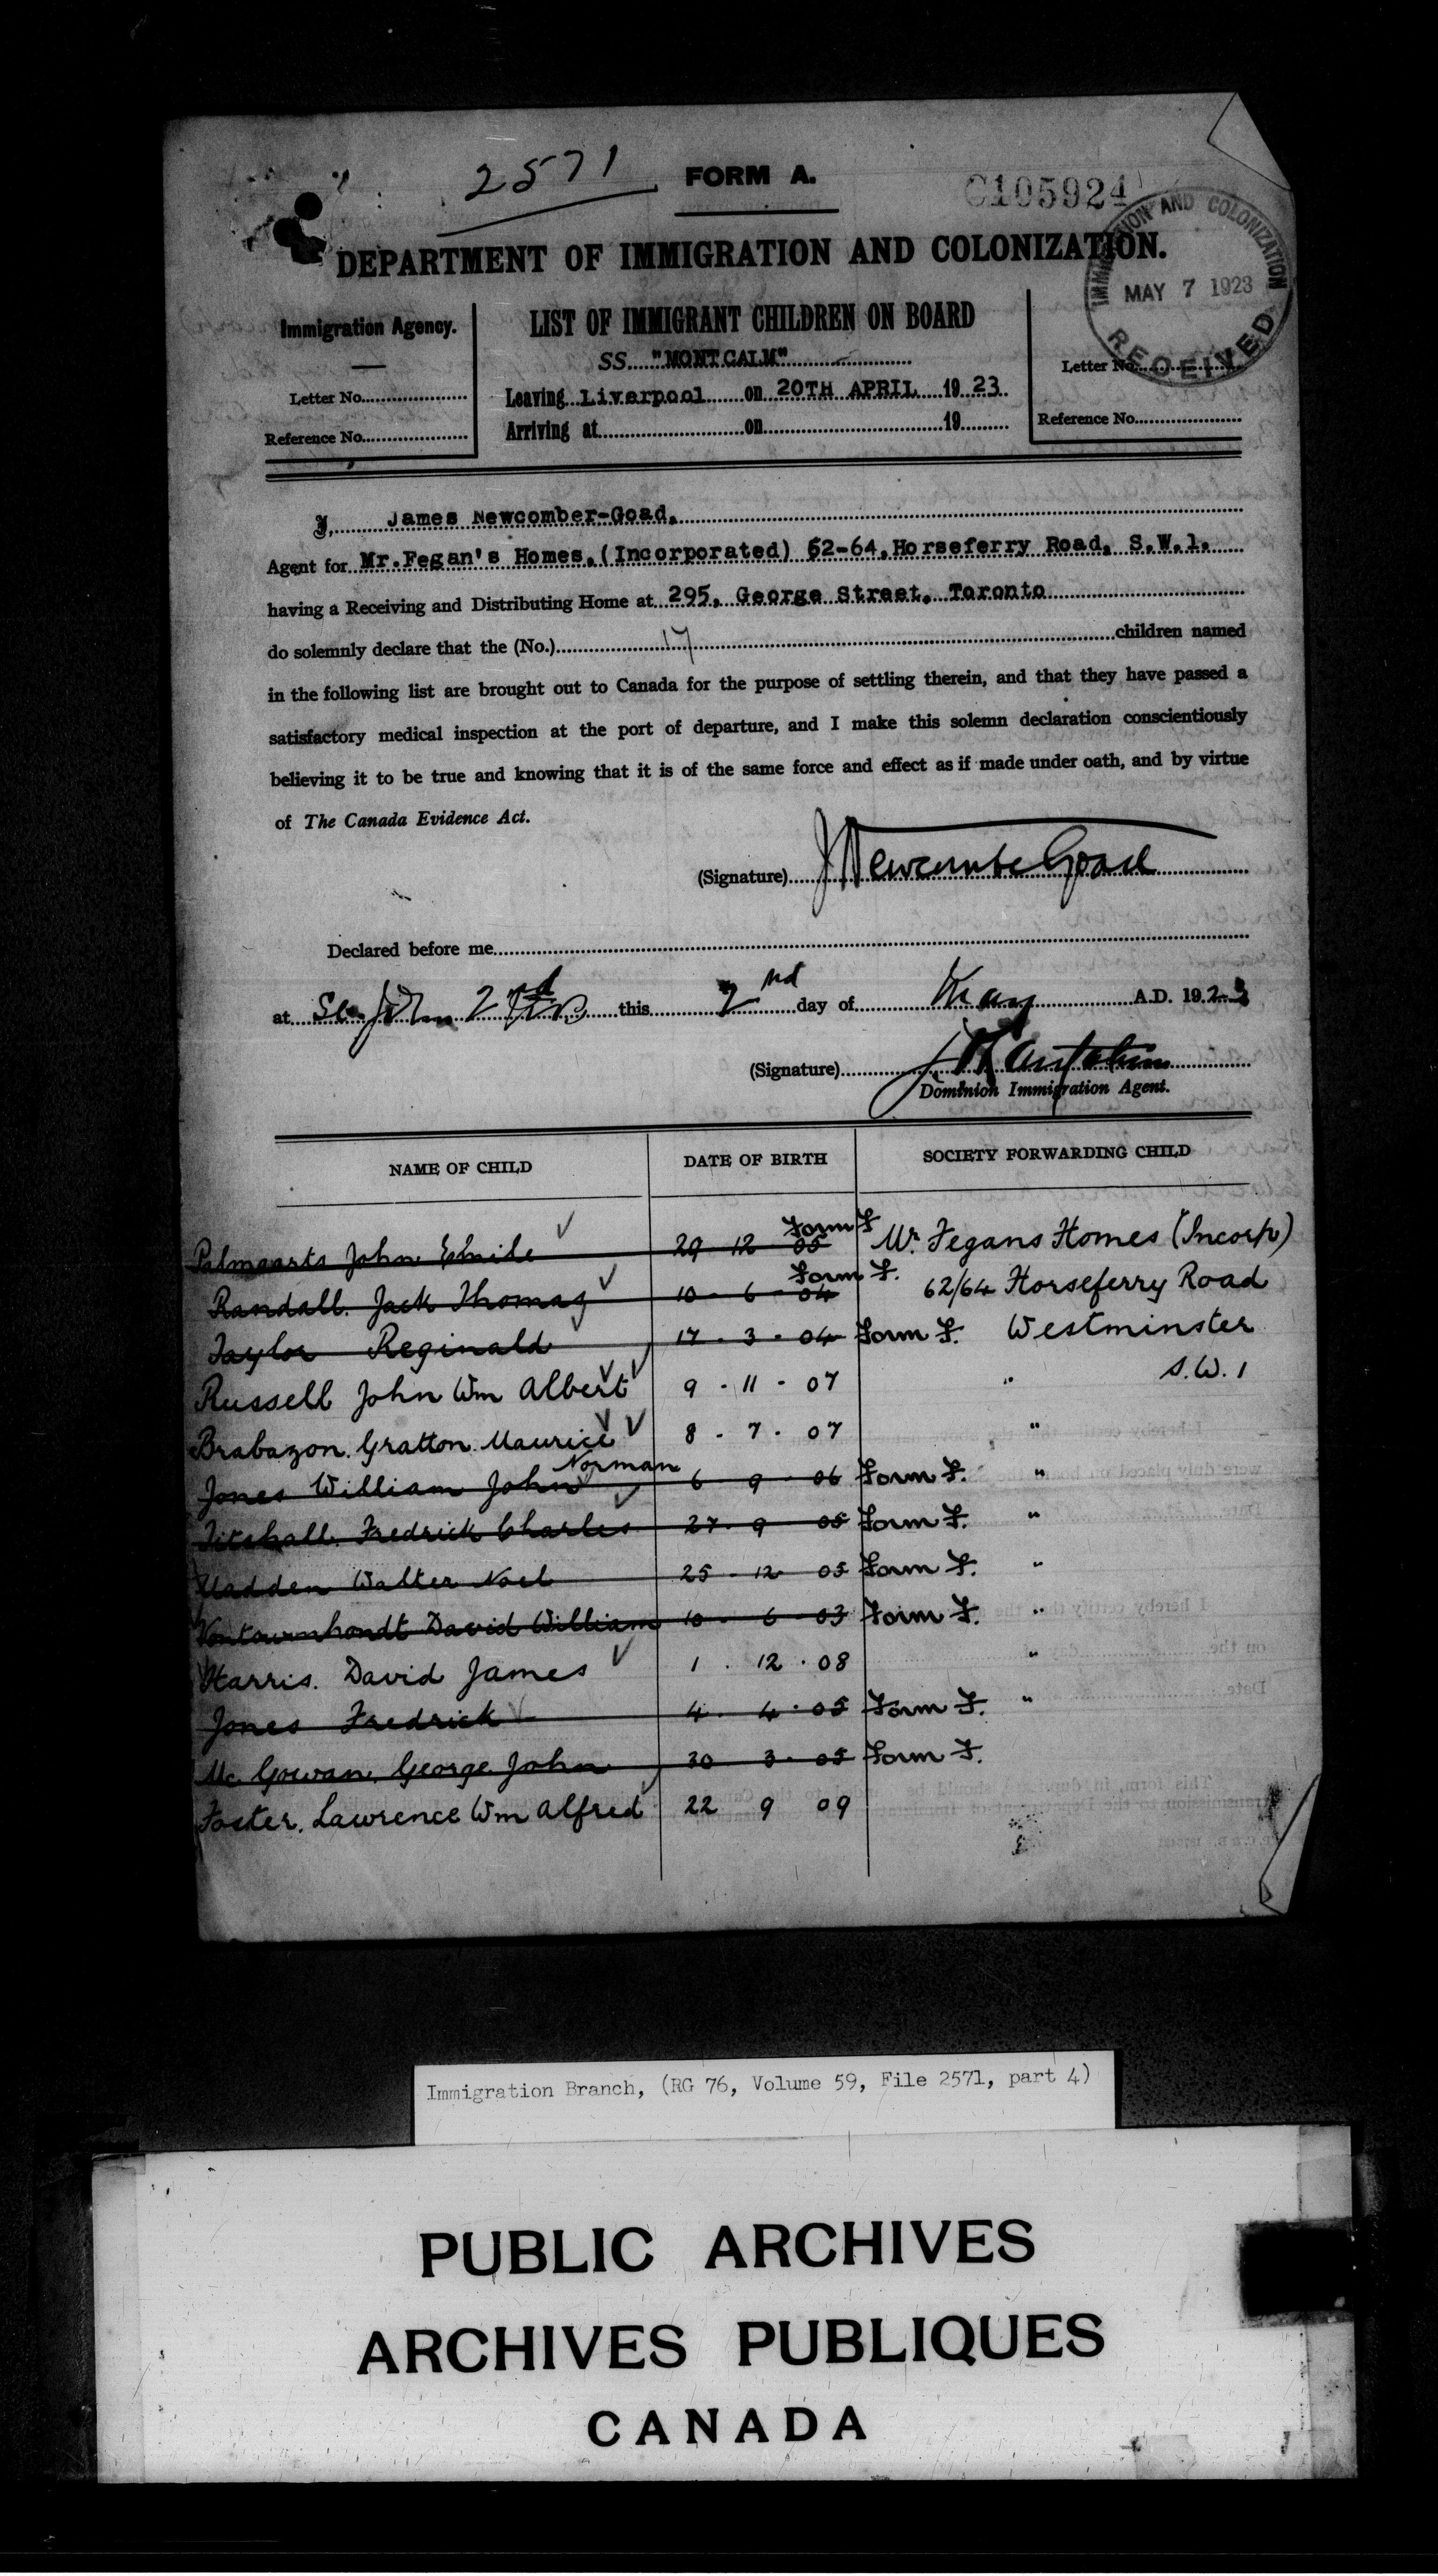 2571
FORM A.
C105924
DEPARTMENT OF IMMIGRATION AND COLONIZATION.
IMMIGRATION AND COLONIZATION
MAY 7 1923
RECEIVED
Immigration Agency.
Letter No.
Reference No.
LIST OF IMMIGRANT CHILDREN ON BOARD
SS "MONTCALM"
Leaving Liverpool on 20TH APRIL 19 23
Arriving at on 19
Letter No.
Reference No.
I, James Newcomber-Goad,
Agent for Mr.Fegan's Homes,(Incorporated) 62-64,Horseferry Road, S.W.1.
having a Receiving and Distributing Home at 295, George Street, Toronto
do solemnly declare that the (No.) 17 children named
in the following list are brought out to Canada for the purpose of settling therein, and that they have passed a
satisfactory medical inspection at the port of departure, and I make this solemn declaration conscientiously
believing it to be true and knowing that it is of the same force and effect as if made under oath, and by virtue
of The Canada Evidence Act.
(Signature) J Newcombe Goad
Declared before me
at St. John this 2nd day of May A.D. 1923
(Signature)
Dominion Immigration Agent.
NAME OF CHILD DATE OF BIRTH SOCIETY FORWARDING CHILD
Palmaarts John Emile 29 12 05 Form F Mr. Fegans Homes (Incorp)
Randall. Jack Thomas 10 - 6 - 04 Form F. 62/64 Horseferry Road
Taylor Reginald 17 - 3 - 04 Form F. Westminster
Russell John Wm Albert 9 - 11 - 07 " S.W.1
Brabazon. Gratton Maurice 8 - 7 - 07 "
Jones William John Norman 6 9 06 Form F. "
Titshall. Fredrick Charles 27 - 9 05 Form F. "
Madden Walter Noel 25 - 12 05 Form F. "
David William 10 - 6 - 03 Form F. "
Harris. David James 1 . 12 . 08 "
Jones Fredrick 4 . 4 . 05 Form F. "
Mc Gowan. George John 30 3 . 05 Form F.
Foster. Lawrence Wm Alfred 22 9 09
Immigration Branch, (RG 76, Volume 59, File 2571, part 4)
PUBLIC ARCHIVES
ARCHIVES PUBLIQUES
CANADA